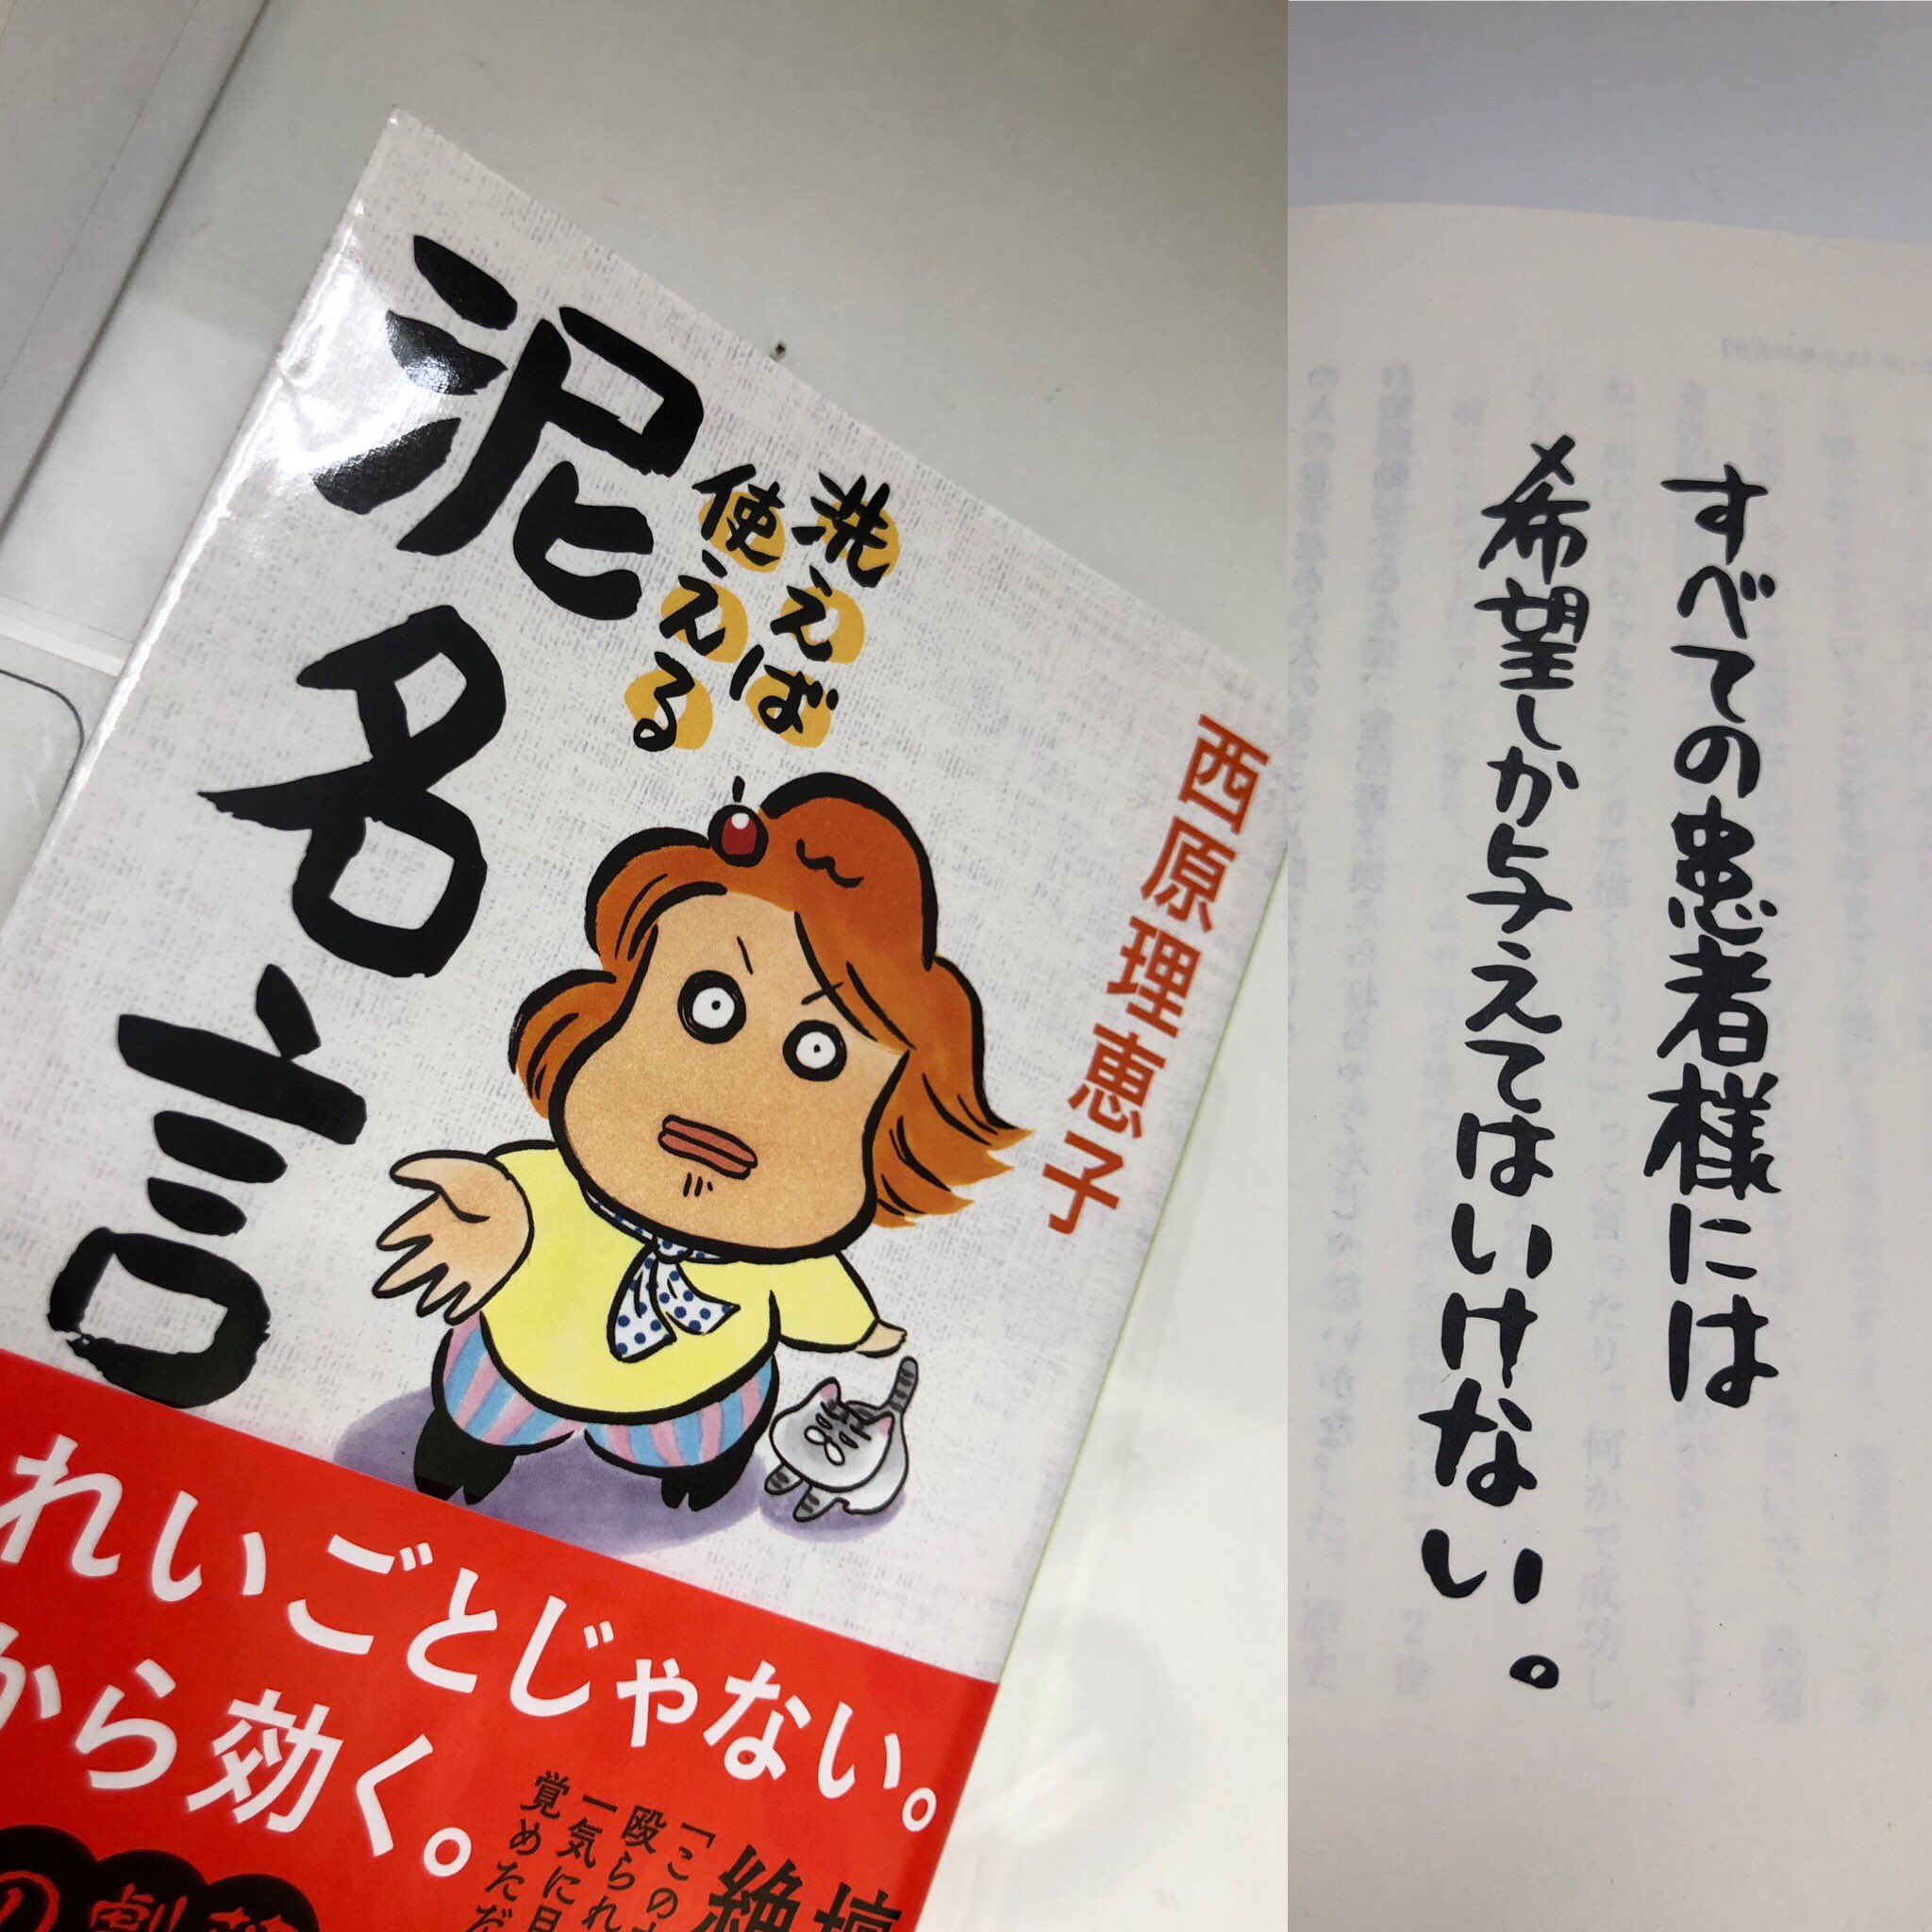 洗えば
使える
泥名言
西原理恵子
れいごとじゃない。
から効く。
「この
殴られ
一気に目
覚めただ
絶
の劇
すべての患者様には
希望しか与えてはいけない。